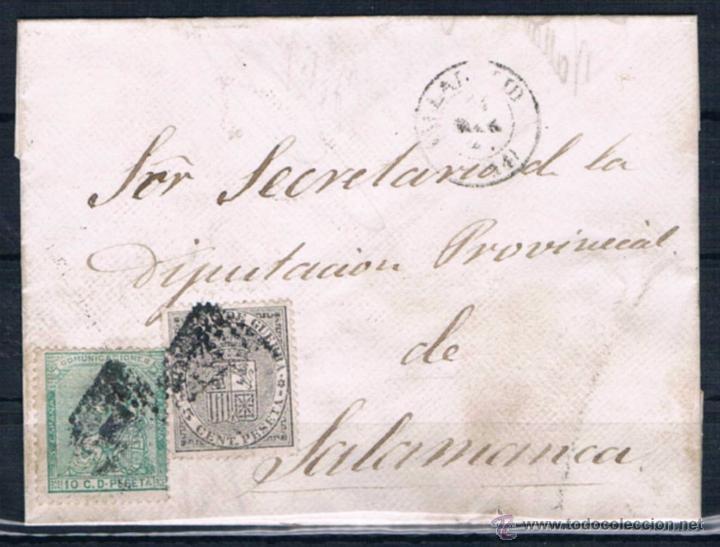 Sor Secretario de la
Diputacion Provincial
de
Salamanca
COMUNICACIONES
ESPAÑA
10 C. D. PESETA
DE GUERRA
5 CENT. PESETA
www.todocoleccion.net